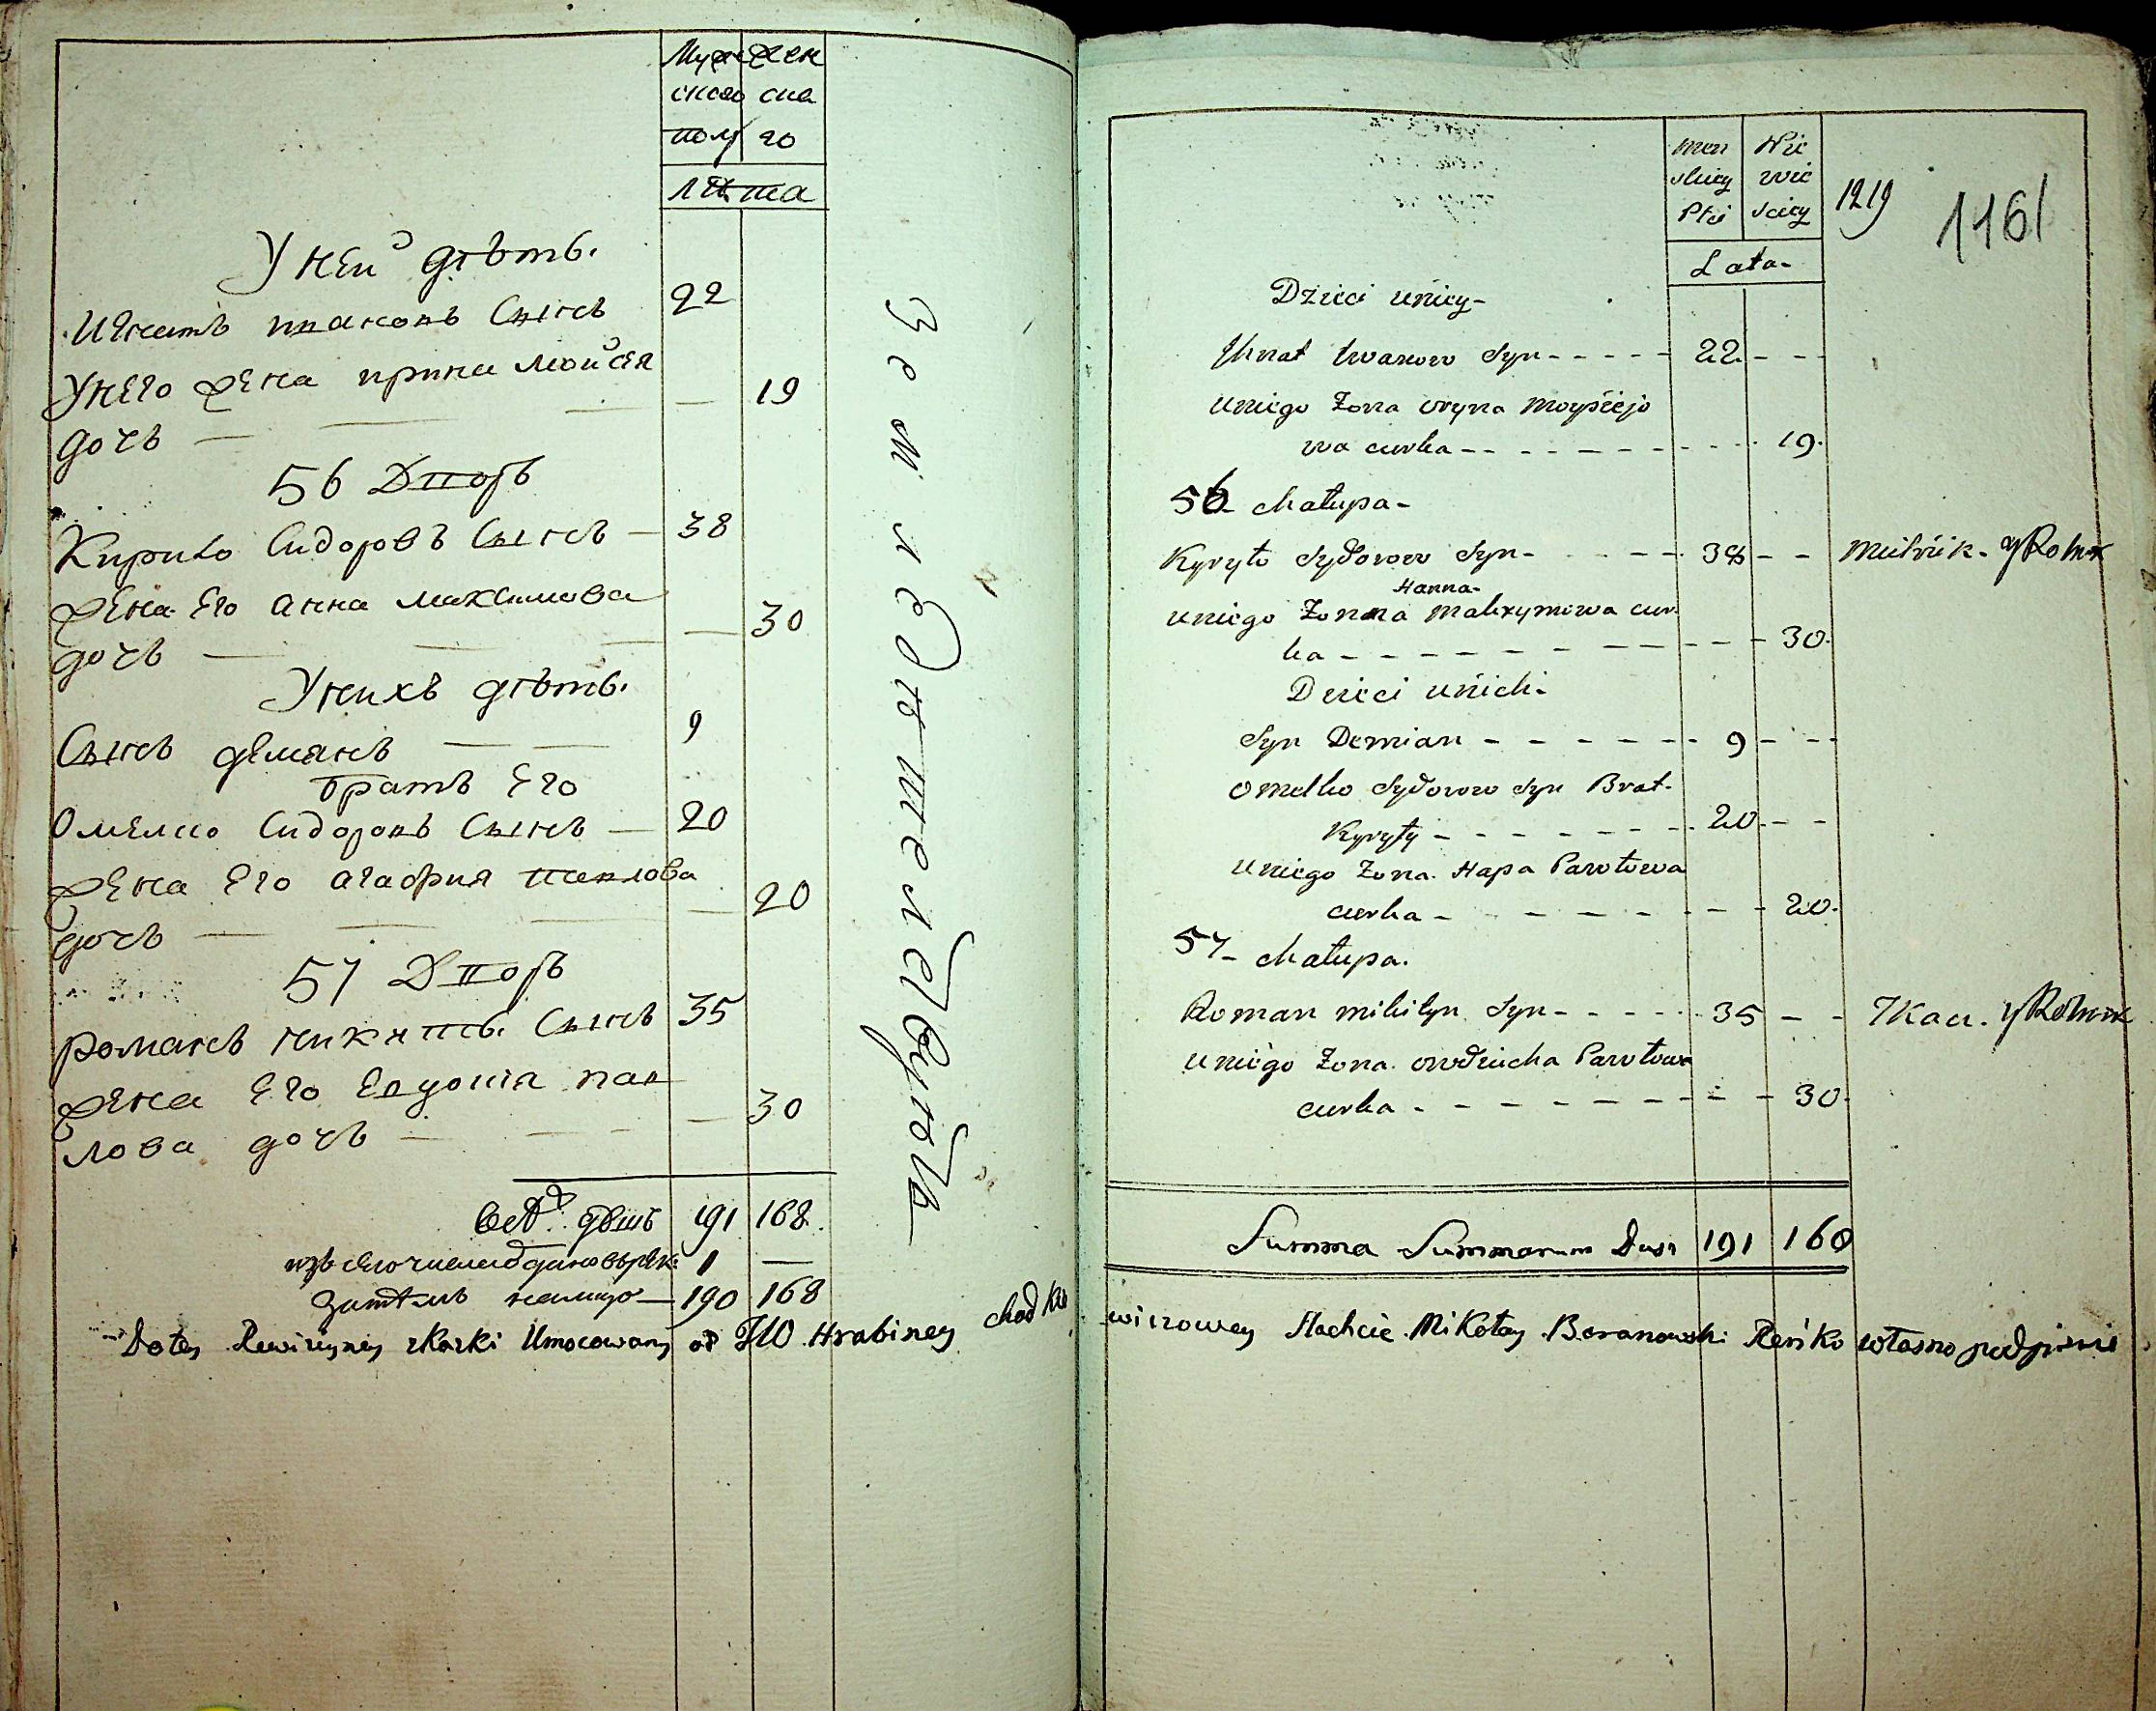 Муж жен
ского ска
полу го
лѣта
У ней дѣти.
Игнатъ ивановъ Сынъ 22
У него жена ирина мойсея
дочь — — — — 19
56 Дворъ
Кирило Сидоровъ Сынъ — 38
жена Его анна максимова
дочь — — — — 30
У нихъ дѣти.
Сынъ демянъ — — 9
братъ Его
Омелко Сидоровъ Сынъ — 20
жена Его агафия павлова
дочь — — — — 20
57 Дворъ
романъ никит. Сынъ 35
жена Его Евдокія пав
лова дочь — — — — 30
душъ 191 168.
1 —
затѣмъ налицо — 190 168
Землѣ
men Nie
skiey wie
Płci sciey
Lata
1219
1161
Dzieci uniey
Ihnat Iwanow Syn - - - - - 22 - - -
uniego Zona oryna moysiejo
wa curka - - - - - - - - - 19.
56 chałupa
Kyryło Sydorow Syn - - - - - 38 - - mielnik. y Rolnik
Hanna
uniego Zona maxymowa cur
ka - - - - - - - - - - - 30.
Dzieci unich
Syn Demian - - - - - - 9 - - -
omelko Sydorow Syn Brat
Kyryły - - - - - - - 20 - - -
uniego Zona Hapa Pawłowa
curka - - - - - - - - 20.
57 chałupa.
Roman mikityn Syn - - - - - 35 - - Tkacz. y Rolnik
uniego Zona owdziucha Pawłowa
curka - - - - - - - - - 30.
Summa Summarum Dusz 191 168
Do tey Rewizyiney skazki Umocowany od JW Hrabiney chodkie wiczowey Slachcic Mikołay Baranowski Ręnko własno podpisuie